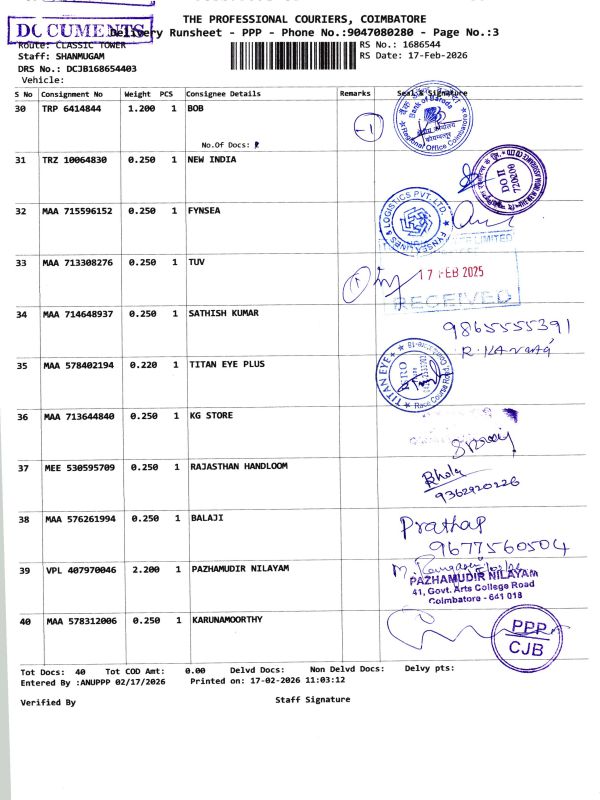 THE PROFESSIONAL COURIERS, COIMBATORE
DOCUMENTS
Delivery Runsheet - PPP - Phone No.:9047080280 - Page No.:3
Route: CLASSIC TOWER
RS No.: 1686544
Staff: SHANMUGAM
RS Date: 17-Feb-2026
DRS No.: DCJB168654403
Vehicle:
S No Consignment No Weight PCS Consignee Details Remarks Seal & Signature
30 TRP 6414844 1.200 1 BOB
No.Of Docs:
-1
Bank of Baroda
Regional Office Coimbatore
31 TRZ 10064830 0.250 1 NEW INDIA
DO II
720200
32 MAA 715596152 0.250 1 FYNSEA
FYNSEA LINES & LOGISTICS PVT. LTD.
33 MAA 713308276 0.250 1 TUV
LIMITED
17 FEB 2025
RECEIVED
34 MAA 714648937 0.250 1 SATHISH KUMAR
9865555391
35 MAA 578402194 0.220 1 TITAN EYE PLUS
TITAN EYE+
Race Course Road
36 MAA 713644840 0.250 1 KG STORE
37 MEE 530595709 0.250 1 RAJASTHAN HANDLOOM
Bhola
9362920226
38 MAA 576261994 0.250 1 BALAJI
Prathap
9677560504
39 VPL 407970046 2.200 1 PAZHAMUDIR NILAYAM
PAZHAMUDIR NILAYAM
41, Govt. Arts College Road
Coimbatore - 641 018
40 MAA 578312006 0.250 1 KARUNAMOORTHY
PPP
CJB
Tot Docs: 40 Tot COD Amt: 0.00 Delvd Docs: Non Delvd Docs: Delvy pts:
Entered By :ANUPPP 02/17/2026 Printed on: 17-02-2026 11:03:12
Verified By Staff Signature